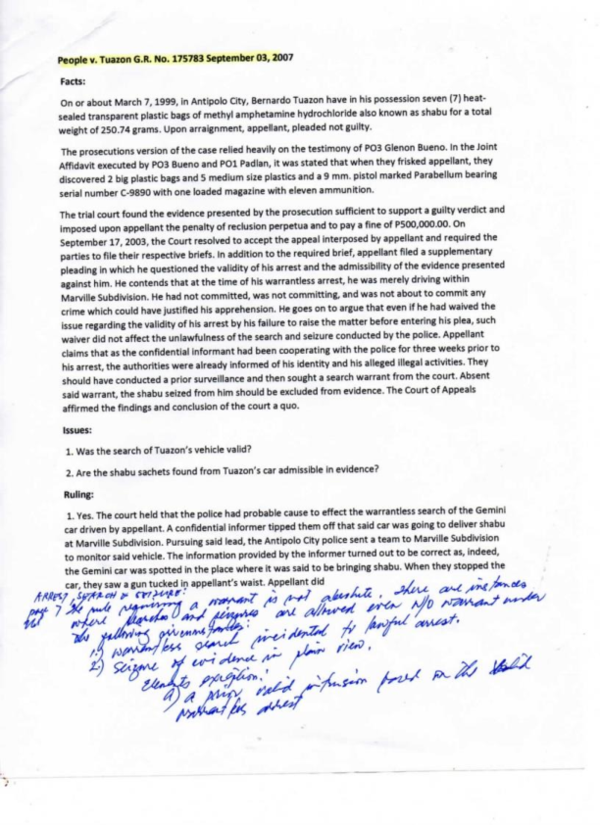 People v. Tuazon G.R. No. 175783 September 03, 2007
Facts:
On or about March 7, 1999, in Antipolo City, Bernardo Tuazon have in his possession seven (7) heat-
sealed transparent plastic bags of methyl amphetamine hydrochloride also known as shabu for a total
weight of 250.74 grams. Upon arraignment, appellant, pleaded not guilty.
The prosecutions version of the case relied heavily on the testimony of PO3 Glenon Bueno. In the Joint
Affidavit executed by PO3 Bueno and PO1 Padlan, it was stated that when they frisked appellant, they
discovered 2 big plastic bags and 5 medium size plastics and a 9 mm. pistol marked Parabellum bearing
serial number C-9890 with one loaded magazine with eleven ammunition.
The trial court found the evidence presented by the prosecution sufficient to support a guilty verdict and
imposed upon appellant the penalty of reclusion perpetua and to pay a fine of P500,000.00. On
September 17, 2003, the Court resolved to accept the appeal interposed by appellant and required the
parties to file their respective briefs. In addition to the required brief, appellant filed a supplementary
pleading in which he questioned the validity of his arrest and the admissibility of the evidence presented
against him. He contends that at the time of his warrantless arrest, he was merely driving within
Marville Subdivision. He had not committed, was not committing, and was not about to commit any
crime which could have justified his apprehension. He goes on to argue that even if he had waived the
issue regarding the validity of his arrest by his failure to raise the matter before entering his plea, such
waiver did not affect the unlawfulness of the search and seizure conducted by the police. Appellant
claims that as the confidential informant had been cooperating with the police for three weeks prior to
his arrest, the authorities were already informed of his identity and his alleged illegal activities. They
should have conducted a prior surveillance and then sought a search warrant from the court. Absent
said warrant, the shabu seized from him should be excluded from evidence. The Court of Appeals
affirmed the findings and conclusion of the court a quo.
Issues:
1. Was the search of Tuazon's vehicle valid?
2. Are the shabu sachets found from Tuazon's car admissible in evidence?
Ruling:
1. Yes. The court held that the police had probable cause to effect the warrantless search of the Gemini
car driven by appellant. A confidential informer tipped them off that said car was going to deliver shabu
at Marville Subdivision. Pursuing said lead, the Antipolo City police sent a team to Marville Subdivision
to monitor said vehicle. The information provided by the informer turned out to be correct as, indeed,
the Gemini car was spotted in the place where it was said to be bringing shabu. When they stopped the
car, they saw a gun tucked in appellant's waist. Appellant did
ARREST, SEARCH & SEIZURE:
page 7 The rule requiring a warrant is not absolute. There are instances
where searches and seizures are allowed even w/o warrant under
the following circumstances:
1) warrantless search incidental to lawful arrest.
2) Seizure of evidence in plain view.
Elements
a) a prior valid intrusion based on the valid
warrantless arrest